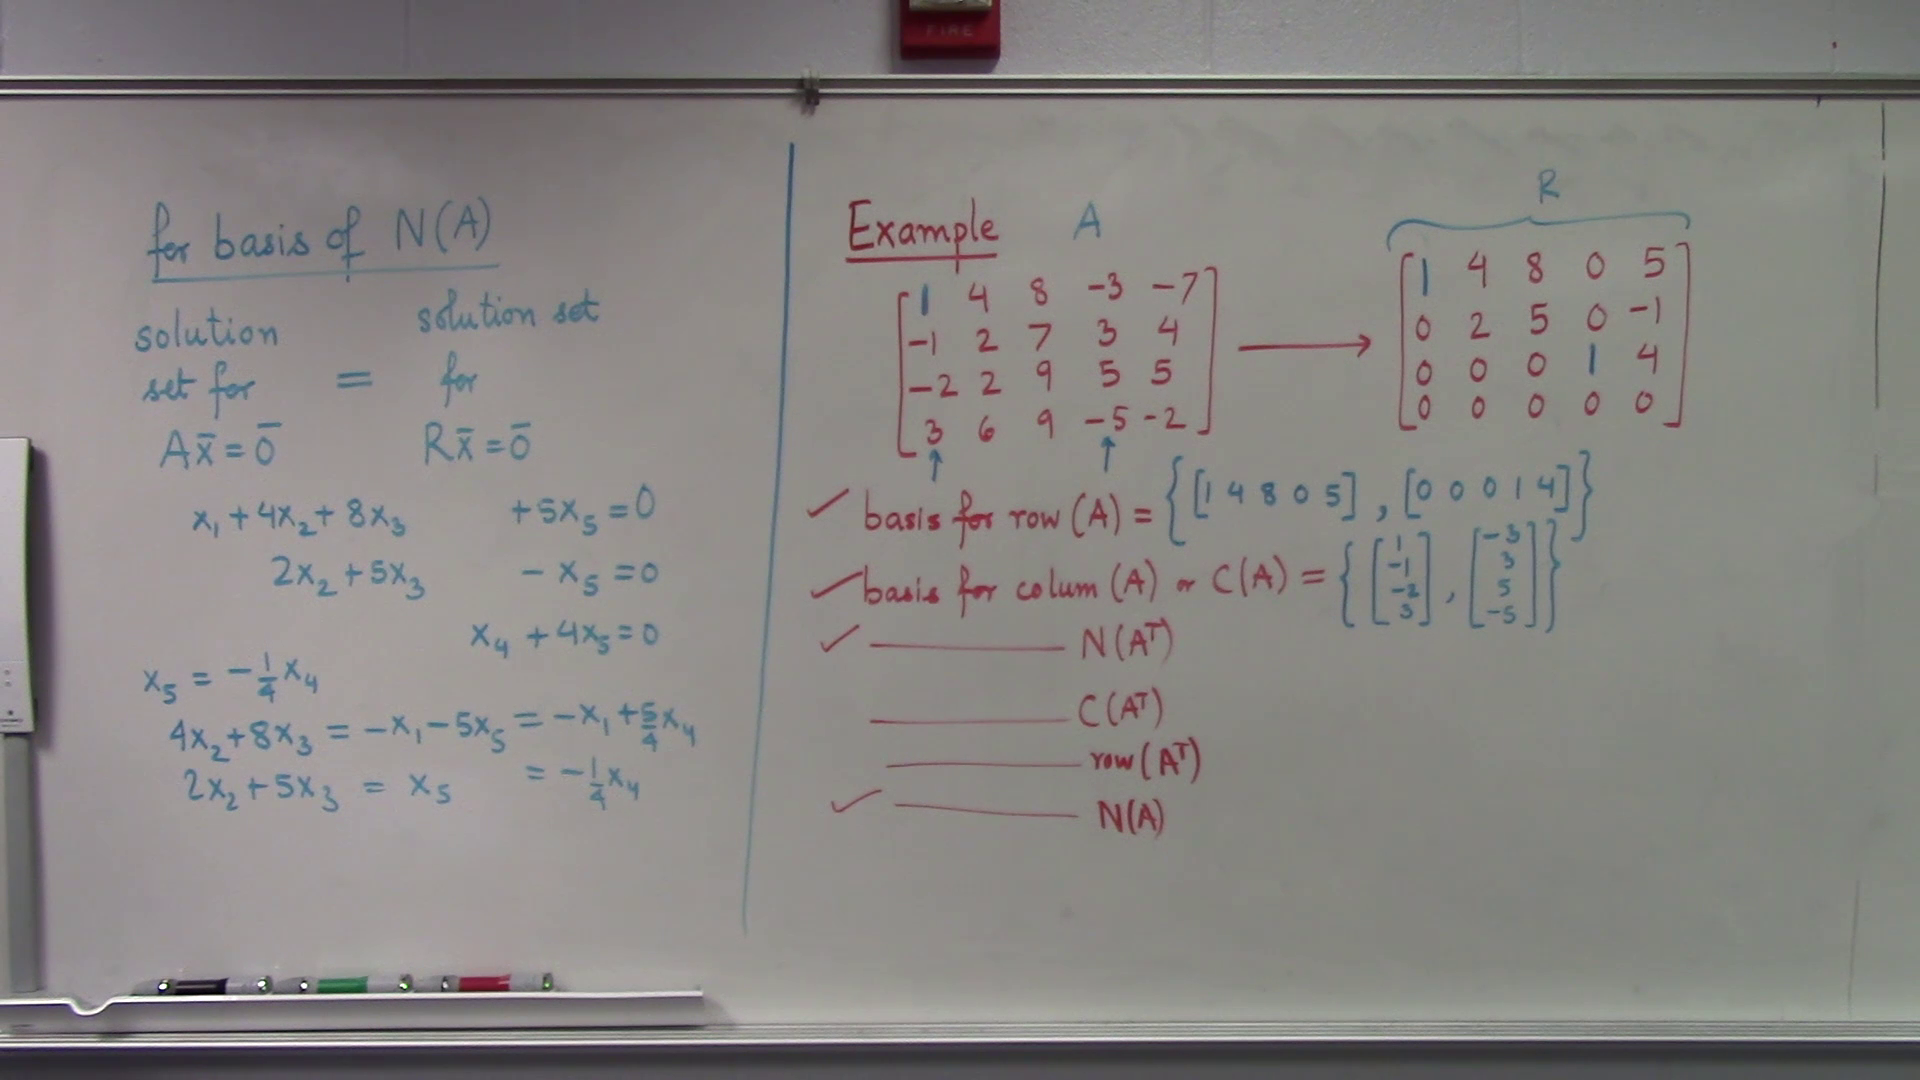 FIRE
for basis of N(A)
solution set for Ax̄ = 0̄ = solution set for Rx̄ = 0̄
x₁ + 4x₂ + 8x₃ + 5x₅ = 0
2x₂ + 5x₃ - x₅ = 0
x₄ + 4x₅ = 0
x₅ = -1/4 x₄
4x₂ + 8x₃ = -x₁ - 5x₅ = -x₁ + 5/4 x₄
2x₂ + 5x₃ = x₅ = -1/4 x₄
Example A R
1 4 8 -3 -7 → 1 4 8 0 5
-1 2 7 3 4 0 2 5 0 -1
-2 2 9 5 5 0 0 0 1 4
3 6 9 -5 -2 0 0 0 0 0
↑ ↑
✓ basis for row (A) = {[1 4 8 0 5], [0 0 0 1 4]}
✓ basis for colum (A) or C(A) = {[1 -1 -2 3], [-3 3 5 -5]}
✓ ——— N(Aᵀ)
——— C(Aᵀ)
——— row(Aᵀ)
✓ ——— N(A)